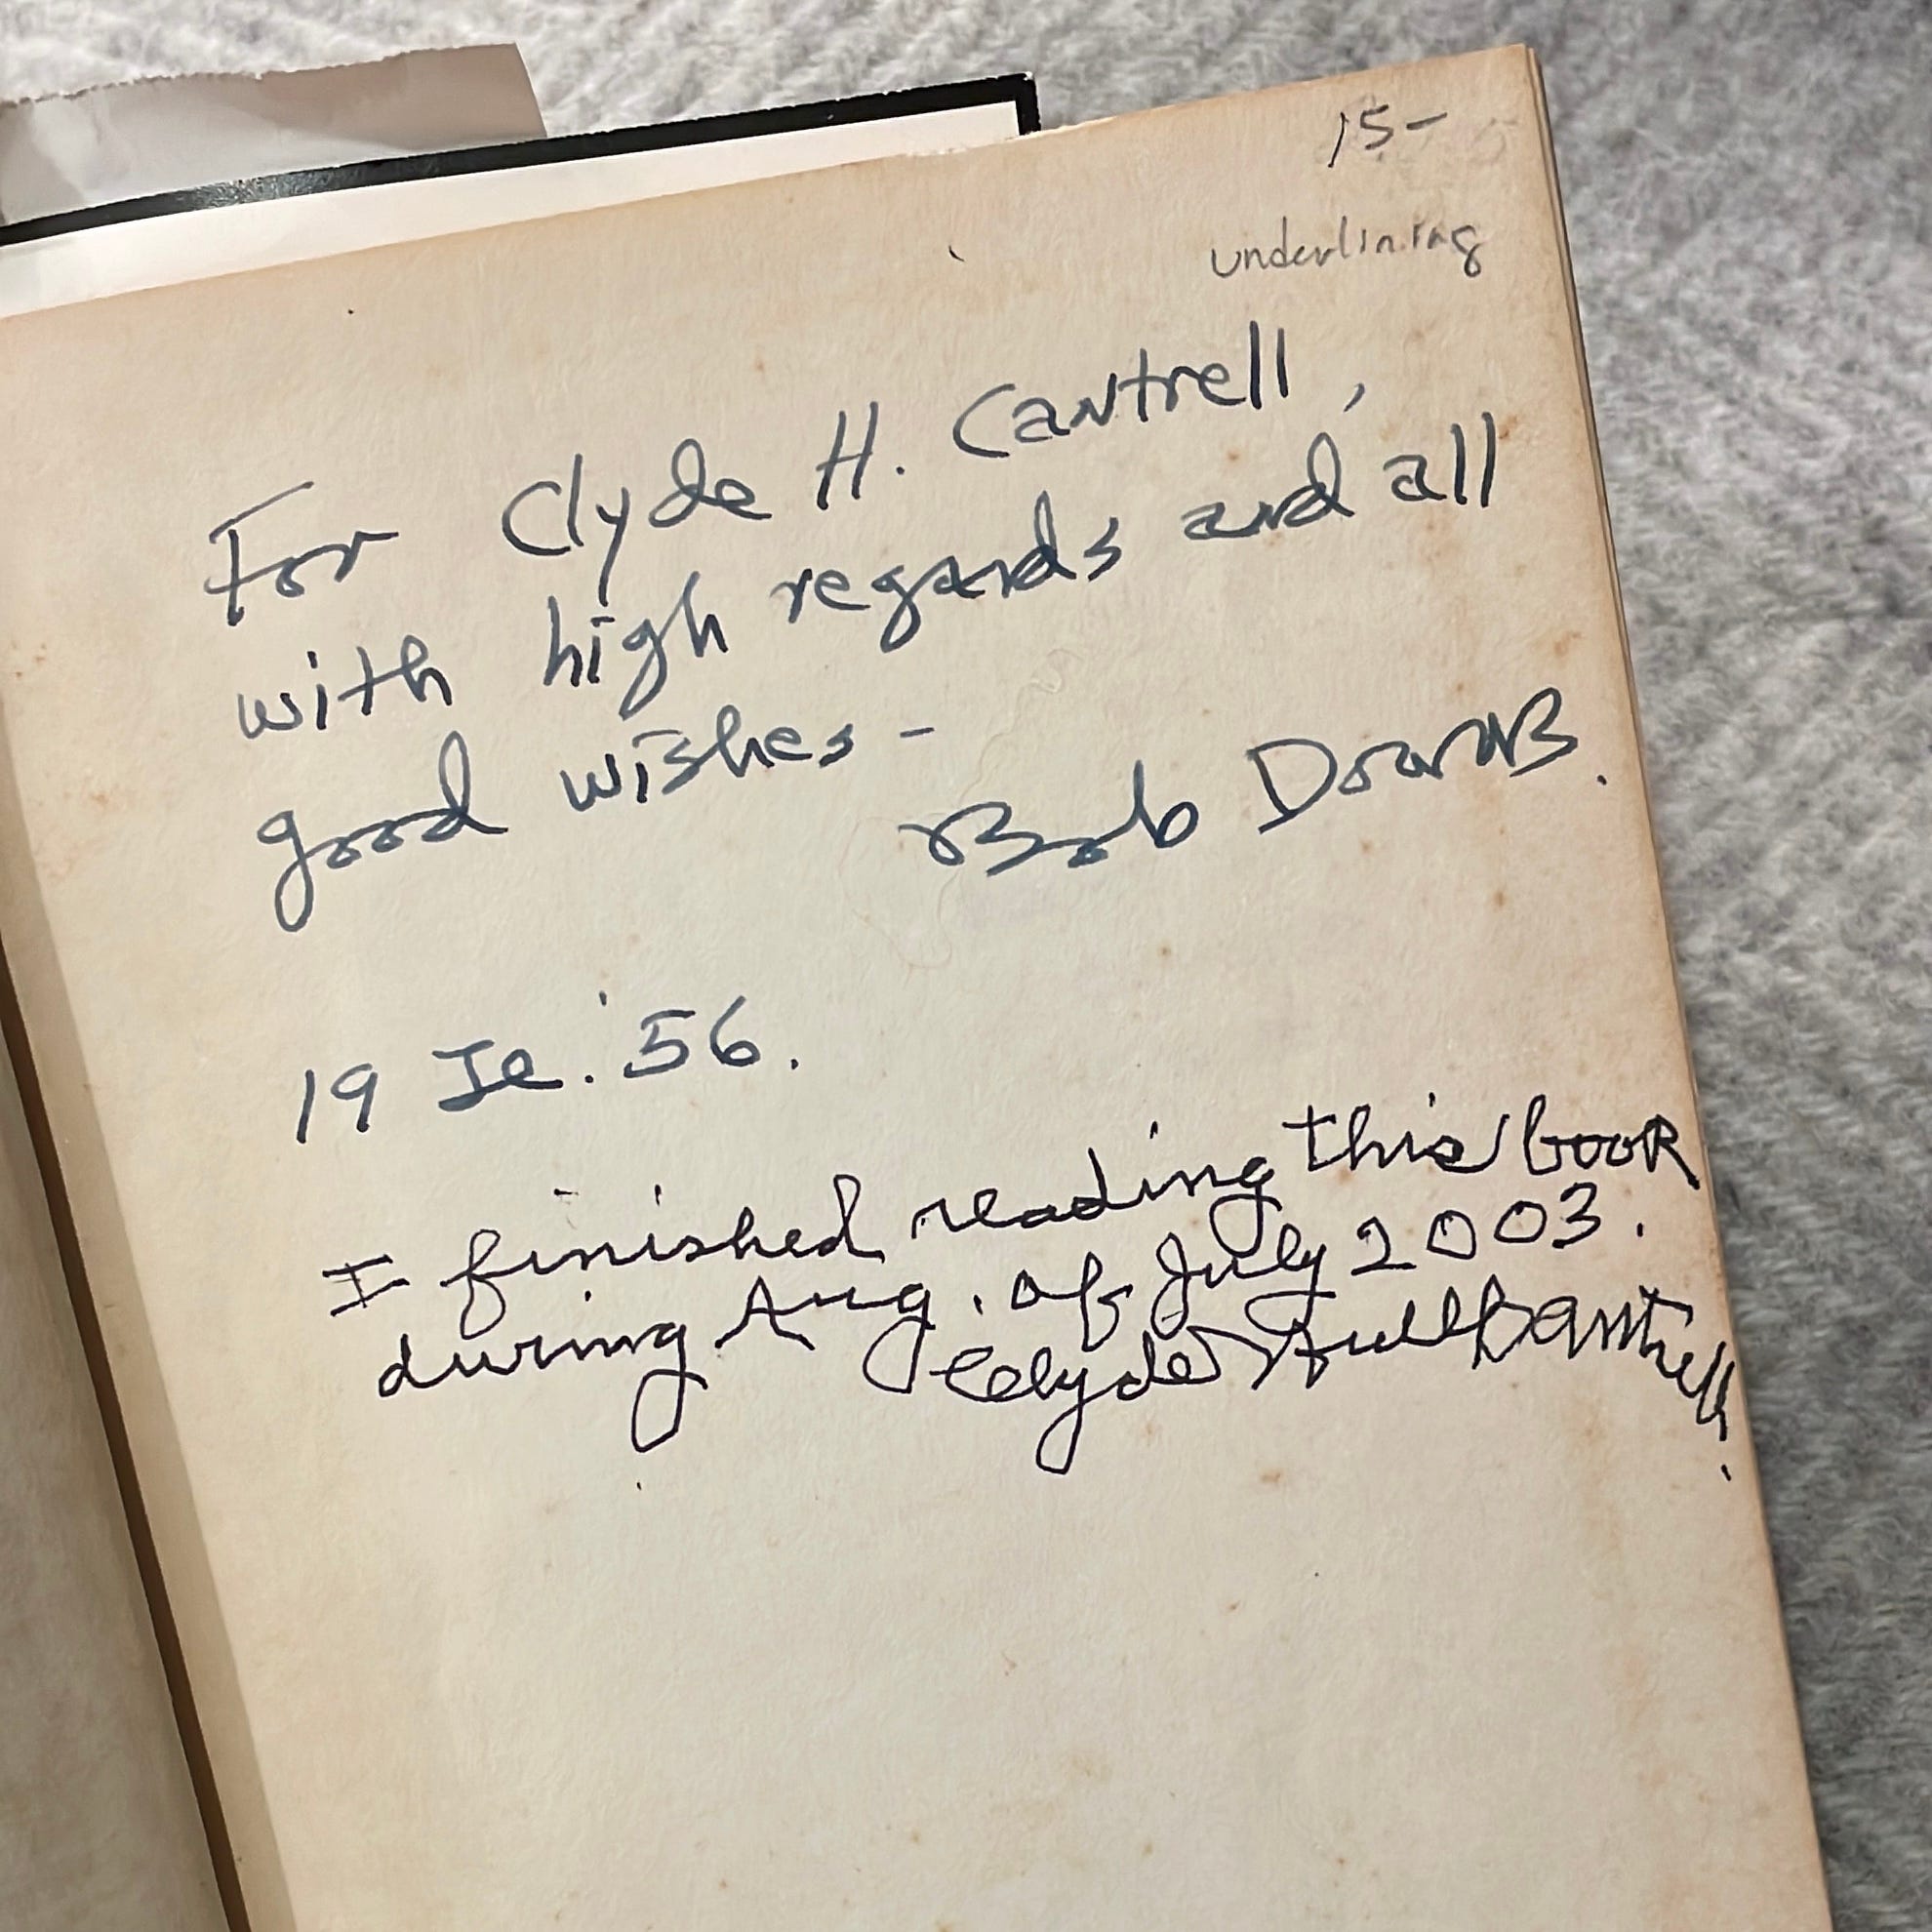 15-
underlining
For Clyde H. Cantrell,
with high regards and all
good wishes -
Bob Downs.
19 Je. '56.
I finished reading this book
during Aug. of July 2003.
Clyde Hull Cantrell.